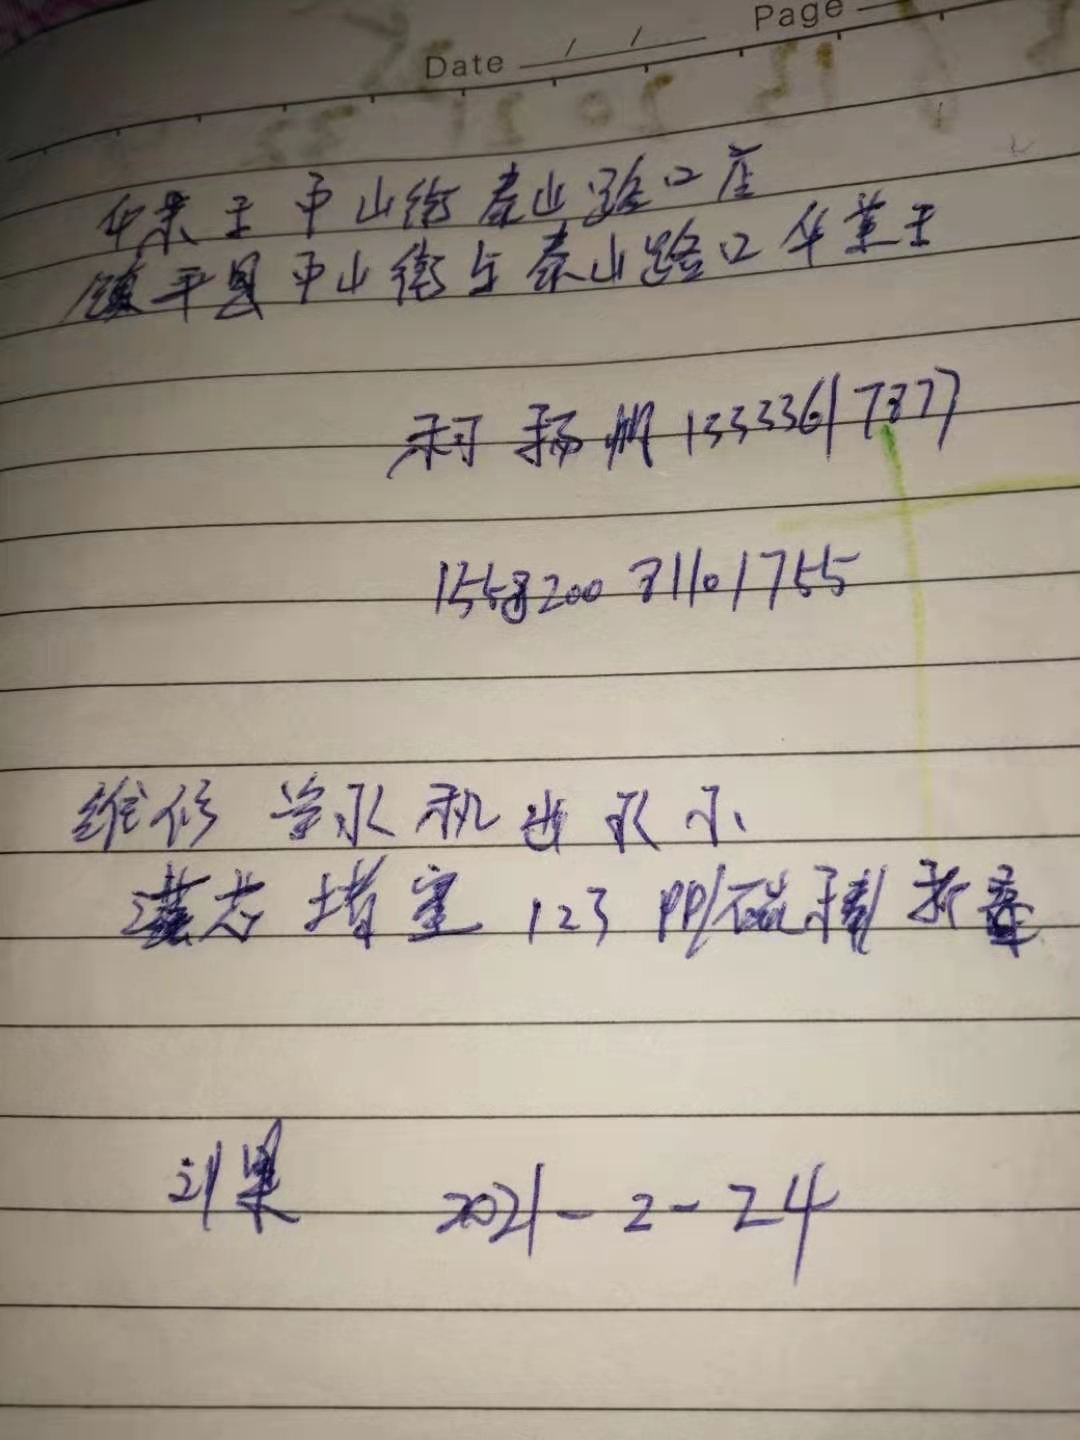 Page
Date / /
华莱士中山街泰山路口店
镇平县中山街与泰山路口华莱士
杨帆 13333617877
1558200 81101755
维修 机出水小
滤芯堵塞 123 PP/硫 折叠
刘果 2021-2-24